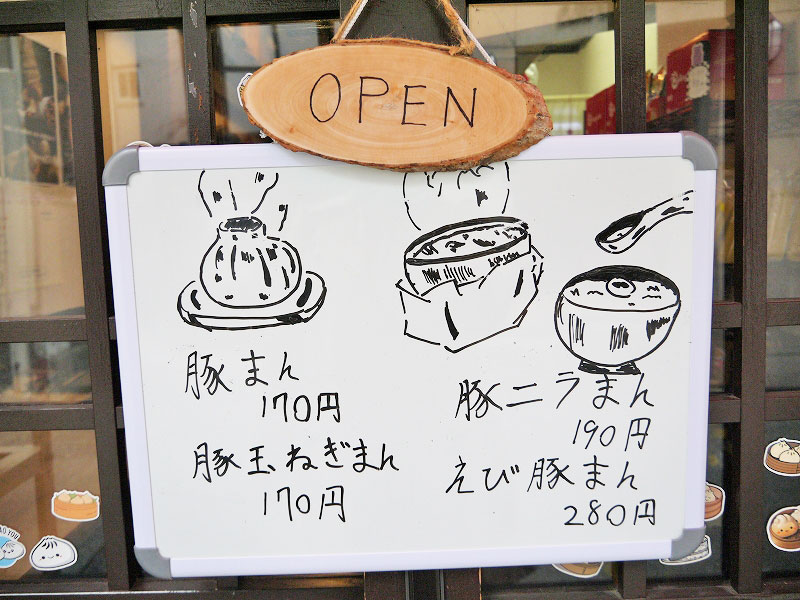 OPEN
豚まん
170円
豚玉ねぎまん
170円
豚ニラまん
190円
えび豚まん
280円